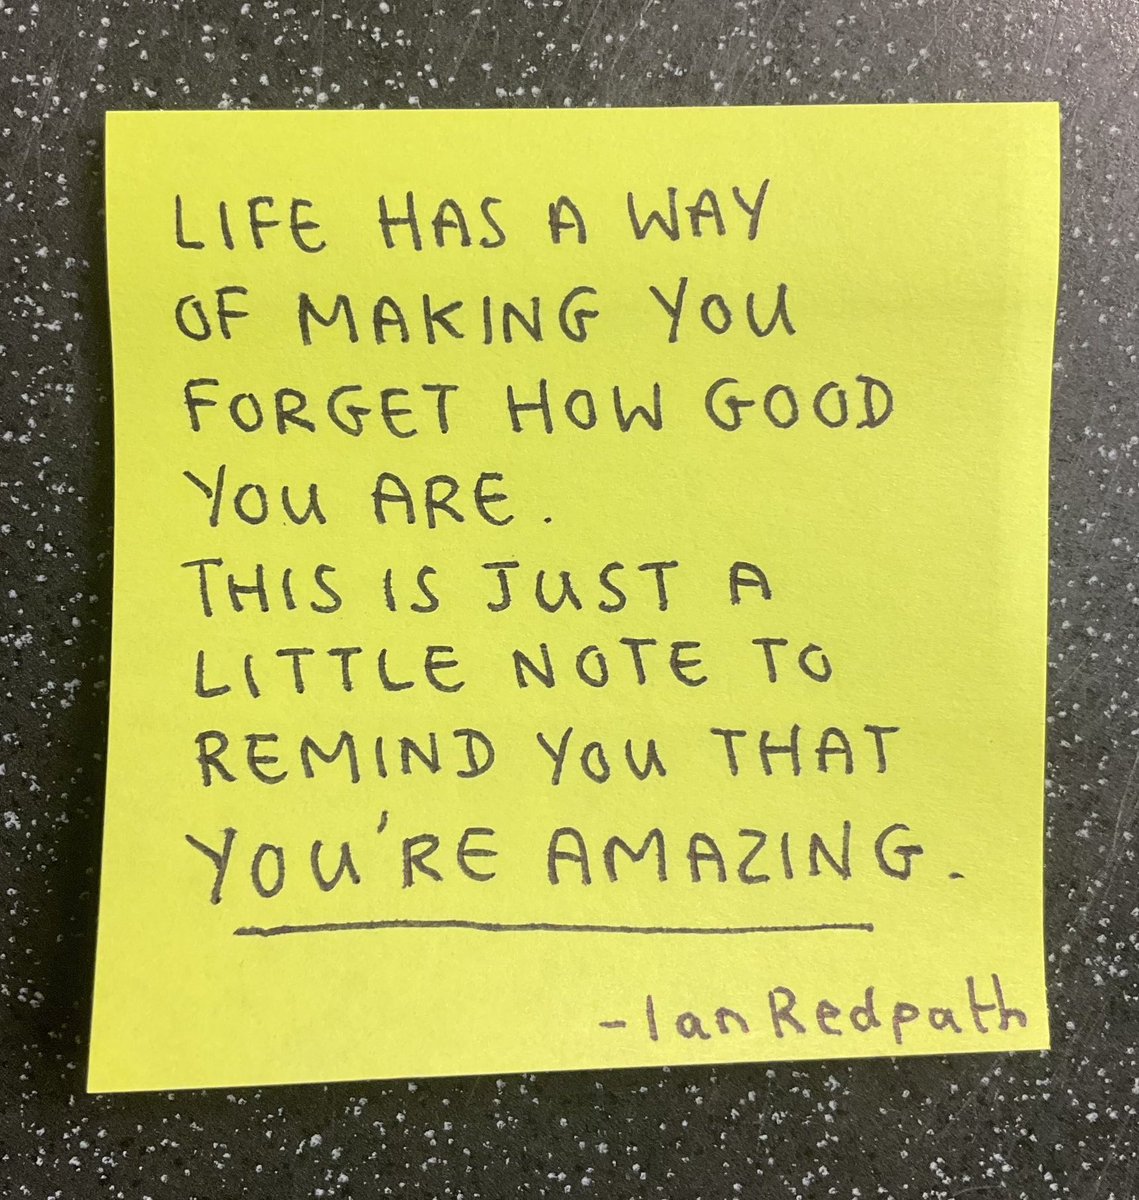 LIFE HAS A WAY
OF MAKING YOU
FORGET HOW GOOD
YOU ARE.
THIS IS JUST A
LITTLE NOTE TO
REMIND YOU THAT
YOU'RE AMAZING.
- Ian Redpath